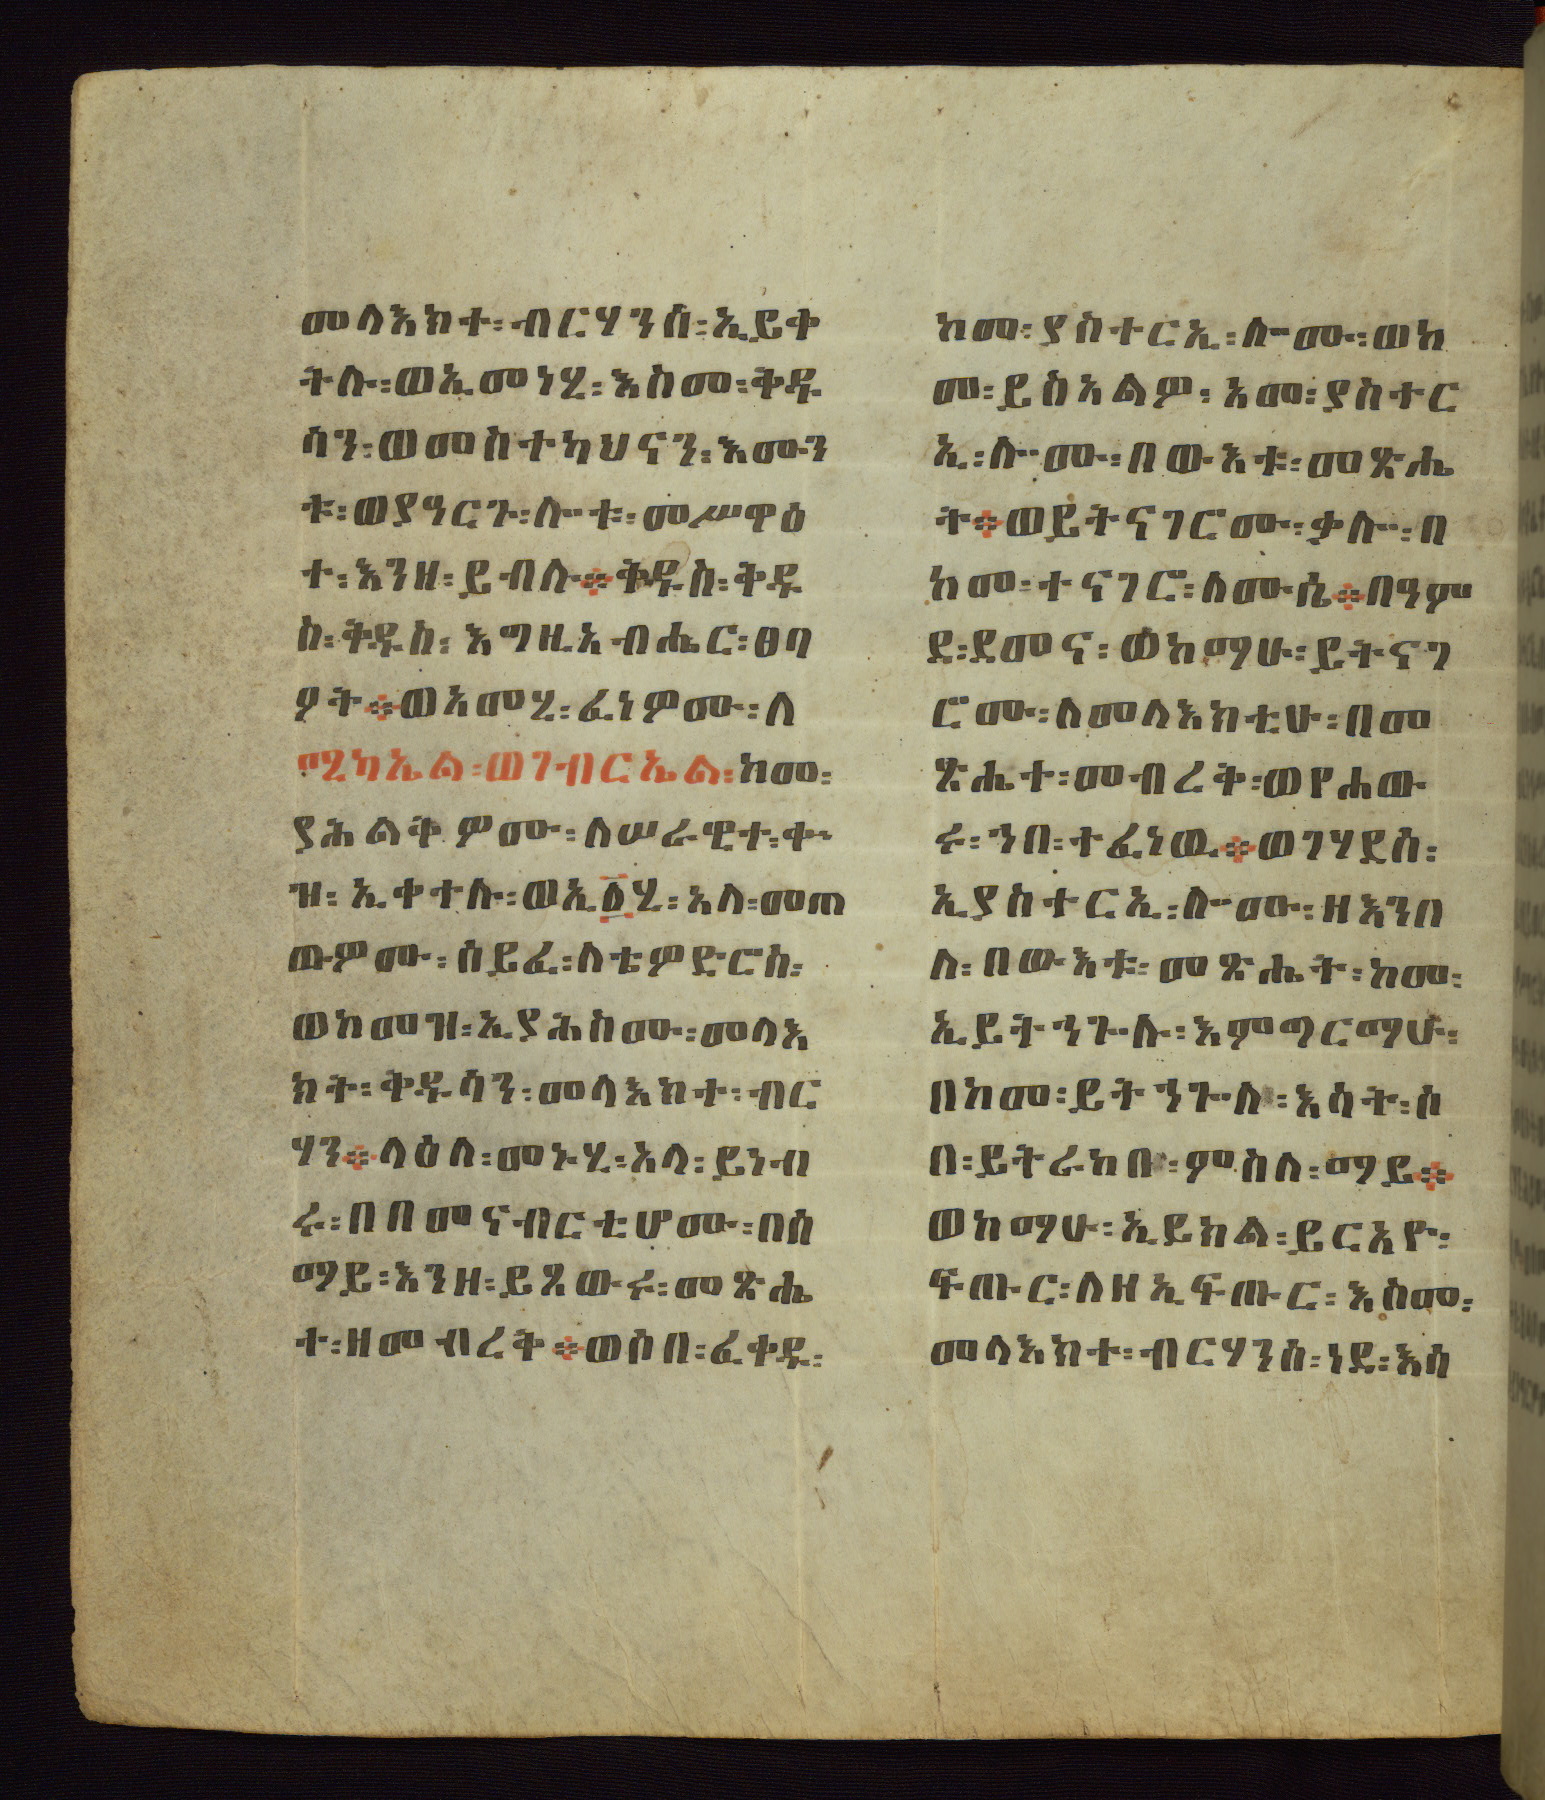 መላእክተ፡ብርሃንሰ፡ኢይቀ
ትሉ፡ወኢመነሂ፡እስመ፡ቅዱ
ሳን፡ወመስተካህናን፡እሙን
ቱ፡ወያዓርጉ፡ሎቱ፡መሥዋዕ
ተ፡እንዘ፡ይብሉ፨ቅዱስ፡ቅዱ
ስ፡ቅዱስ፡እግዚአብሔር፡ፀባ
ዖት፨ወአመሂ፡ፈነዎሙ፡ለ
ሚካኤል፡ወገብርኤል፡ከመ፡
ያሕልቅዎሙ፡ለሠራዊተ፡ቀ
ዝ፡ኢቀተሉ፡ወኢ፩ሂ፡አላ፡መጠ
ውዎሙ፡ሰይፈ፡ለቴዎድሮስ፡
ወከመዝ፡ኢያሕስሙ፡መላእ
ክት፡ቅዱሳን፡መላእክተ፡ብር
ሃን፨ላዕለ፡መኑሂ፡አላ፡ይነብ
ሩ፡በበመናብርቲሆሙ፡በሰ
ማይ፡እንዘ፡ይጸውሩ፡መጽሔ
ተ፡ዘመብረቅ፨ወሶበ፡ፈቀዱ፡
ከመ፡ያስተርኢ፡ሎሙ፡ወከ
መ፡ይስአልዎ፡እመ፡ያስተር
ኢ፡ሎሙ፡በውእቱ፡መጽሔ
ት፨ወይትናገሮሙ፡ቃሉ፡በ
ከመ፡ተናገሮ፡ለሙሴ፨በዓም
ደ፡ደመና፡ወከማሁ፡ይትናገ
ሮሙ፡ለመላእክቲሁ፡በመ
ጽሔተ፡መብረቅ፡ወየሐው
ሩ፡ኀበ፡ተፈነዉ፨ወገሃደሰ፡
ኢያስተርኢ፡ሎሙ፡ዘእንበ
ለ፡በውእቱ፡መጽሔት፡ከመ፡
ኢይትኀጐሉ፡እምግርማሁ፡
በከመ፡ይትኀጐል፡እሳት፡ሶ
በ፡ይትራከብ፡ምስለ፡ማይ፨
ወከማሁ፡ኢይክል፡ይርአዮ፡
ፍጡር፡ለዘኢፍጡር፡እስመ፡
መላእክተ፡ብርሃንሰ፡ነደ፡እሳ